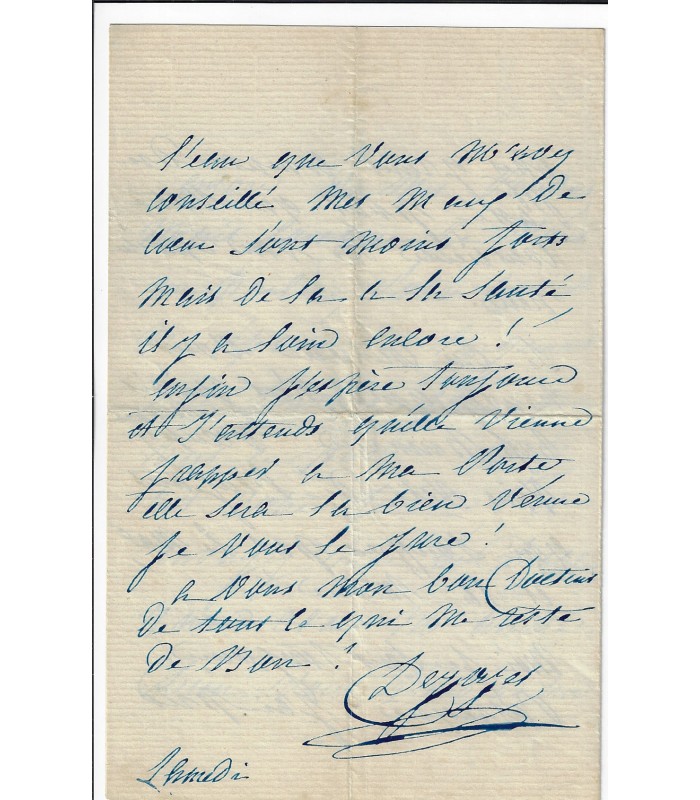 l'eau que vous m'avez
conseillé mes maux de
coeur sont moins forts
mais de la a la santé
il y a loin encore !
enfin j'espère toujours
et J'attends qu'elle vienne
frapper a ma Porte
elle sera la bien venue
je vous le jure !
a vous mon bon Docteur
de tout ce qui me reste
de Bon !
Samedi